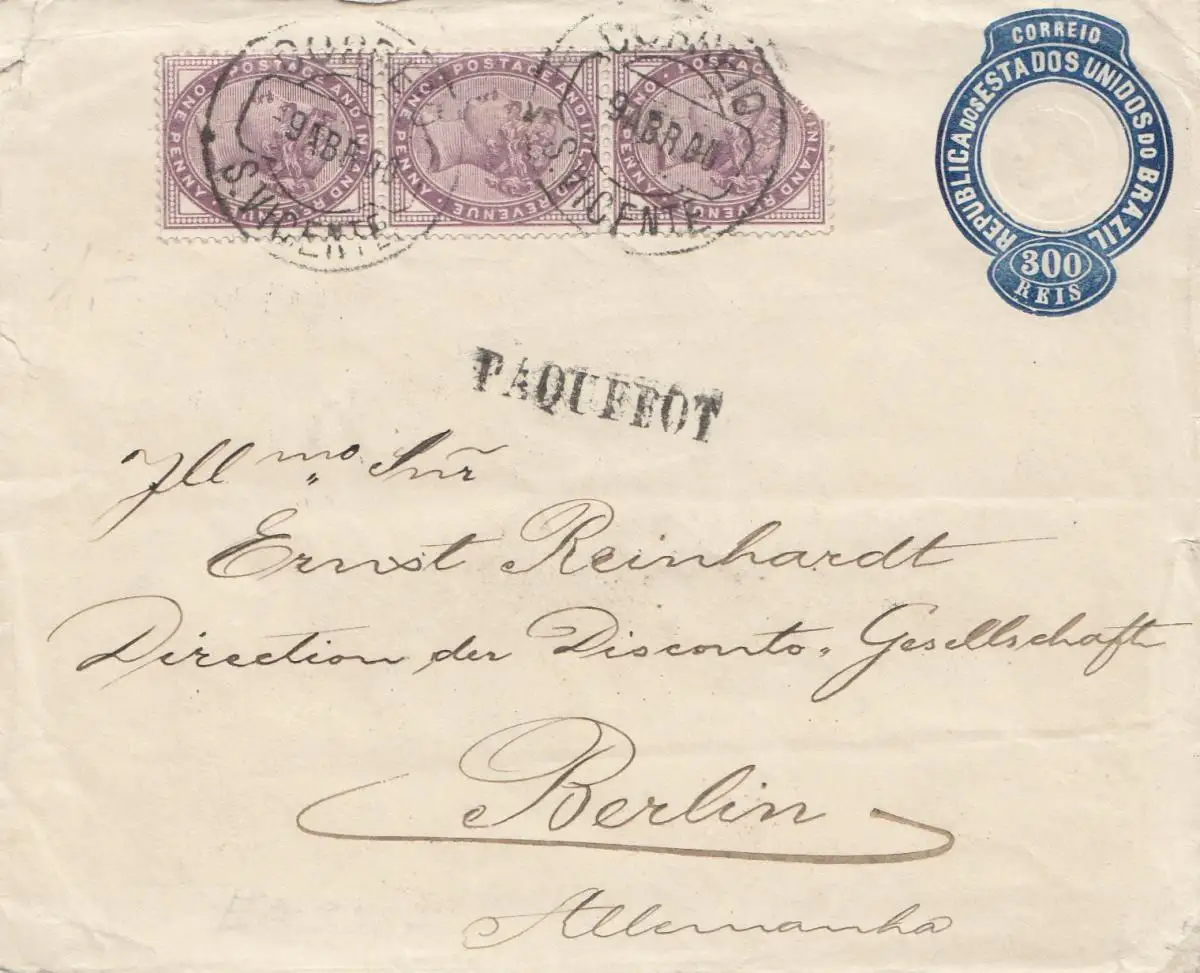 CORREIO
REPUBLICA DOS ESTADOS UNIDOS DO BRAZIL
300
REIS
POSTAGE AND INLAND REVENUE ONE PENNY
POSTAGE AND INLAND REVENUE ONE PENNY
POSTAGE AND INLAND REVENUE ONE PENNY
CORREIO
9 ABR.00
S.VICENTE
CORREIO
9 ABR.00
S.VICENTE
PAQUEBOT
Ill mo Snr
Ernst Reinhardt
Direction der Disconto-Gesellschaft
Berlin
Allemanha